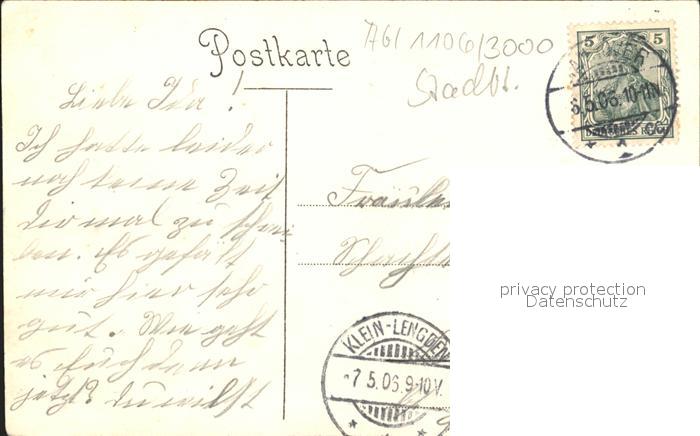 Postkarte
A61 1106/3000
Stadtt.
5 5
6.5.06. 10-11
DEUTSCHES REICH
Liebe Ida!
Ich hatte leider
noch keine Zeit
dir mal zu schrei
ben. Es gefällt
mir hier sehr
gut. Wie geht
es Euch denn
jetzt? Du willst
Fräule
Schacht
privacy protection
Datenschutz
KLEIN-LENGDEN
-7.5.06.9-10V.